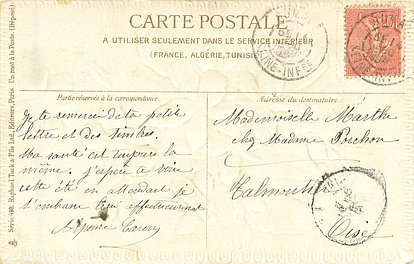 CARTE POSTALE
A UTILISER SEULEMENT DANS LE SERVICE INTÉRIEUR
(FRANCE, ALGÉRIE, TUNISIE)
Partie réservée à la correspondance
Je te remercie de ta petite
lettre et des timbres.
Ma santé est toujours la
même. j'espère a voir
cette été en attendant je
t'embrasse bien affectueusement
Adresse du destinataire
Mademoiselle Marthe
chez Madame
Oise
Série 400. Raphael Tuck & Fils Ltd, Editeurs, Paris. Un mot à la Poste. (Déposé)